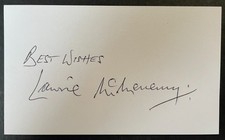 BEST WISHES
Lawrie McMenemy.